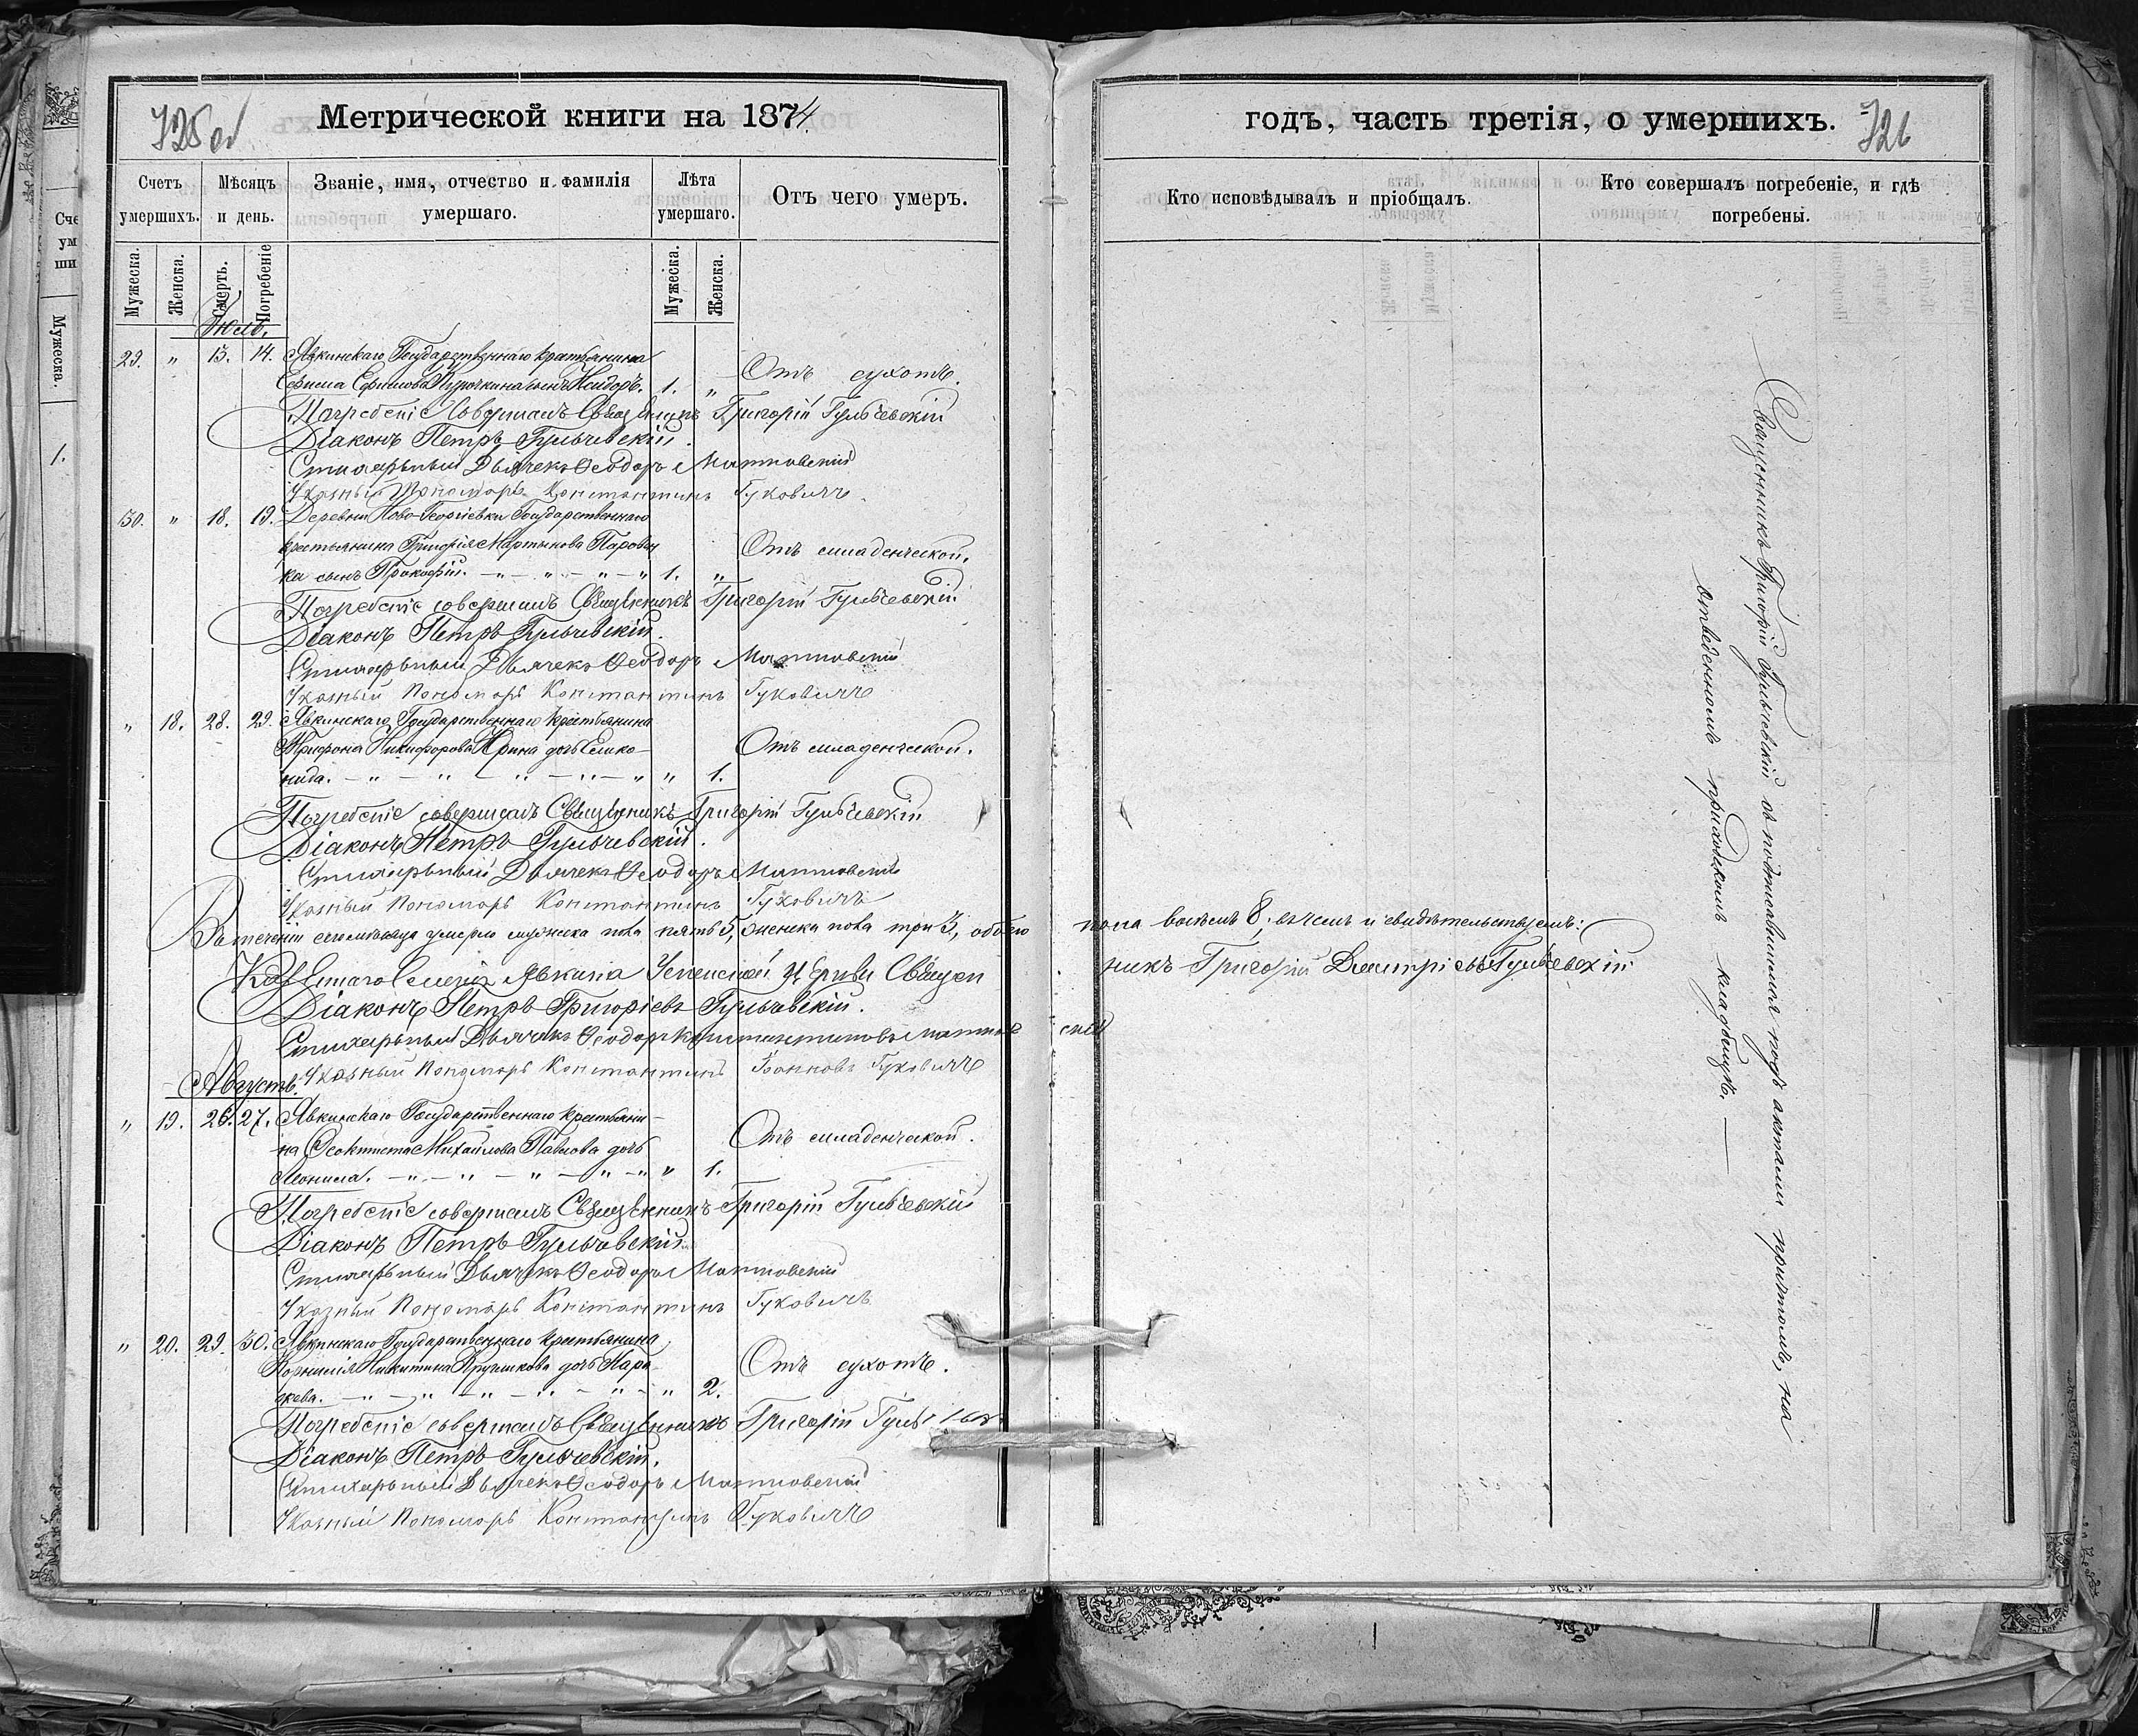 725 об
Метрической книги на 1874.
Счетъ умершихъ.
Мѣсяцъ и день.
Званіе, имя, отчество и фамилія умершаго.
Лѣта умершаго.
Отъ чего умеръ.
Мужеска.
Женска.
Смерть.
Погребеніе
Мужеска.
Женска.
Іюль.
29. " 13. 14. Явкинскаго Государственнаго крестьянина
Ефимова сынъ Исидоръ. 1. " Отъ сухотъ.
Погребеніе совершалъ Священникъ Григорій Гульчевскій
Діаконъ Петръ Гульчевскій.
Стихарьный Дьячекъ Ѳеодоръ
Указный Пономарь Константинъ Гуковичъ
30. " 18. 19. Деревни Ново-Георгіевки Государственнаго
крестьянина Григорія Мартынова Парован Отъ младенческой.
ка сынъ Прокофій. - " - " - " - " 1. "
Погребеніе совершалъ Священникъ Григорій Гульчевскій
Діаконъ Петръ Гульчевскій.
Стихарьный Дьячекъ Ѳеодоръ
Указный Пономарь Константинъ Гуковичъ
" 18. 28. 29. Явкинскаго Государственнаго крестьянина
Трифона Никифорова дочь Емко- Отъ младенческой.
нида. - " - " - " - " - " " 1.
Погребеніе совершалъ Священникъ Григорій Гульчевскій
Діаконъ Петръ Гульчевскій.
Стихарьный Дьячекъ Ѳеодоръ
Указный Пономарь Константинъ Гуковичъ
Въ теченіи сего мѣсяца умерло мужеска пола пять 5, женска пола три 3, обоего
Села Явкина Успенской Церкви Священ
Діаконъ Петръ Григорьевъ Гульчевскій.
Стихарьный Дьячекъ Ѳеодоръ Константиновъ
Указный Пономарь Константинъ Гуковичъ
Августъ.
" 19. 26. 27. Явкинскаго Государственнаго крестьяни-
на Ѳеоктиста Михайлова Павлова дочь Отъ младенческой.
Леонила. - " - " - " - " - " " 1.
Погребеніе совершалъ Священникъ Григорій Гульчевскій
Діаконъ Петръ Гульчевскій
Стихарьный Дьячекъ Ѳеодоръ
Указный Пономарь Константинъ Гуковичъ
" 20. 29. 30. Явкинскаго Государственнаго крестьянина
Корнилія Никитина дочь Пара- Отъ сухотъ.
скева. - " - " - " - " - " - " 2.
Погребеніе совершалъ Священникъ Григорій
Діаконъ Петръ Гульчевскій.
Стихарьный Дьячекъ Ѳеодоръ
Указный Пономарь Константинъ Гуковичъ
годъ, часть третія, о умершихъ.
726
Кто исповѣдывалъ и пріобщалъ.
Кто совершалъ погребеніе, и гдѣ погребены.
пола восемь 8, въ чемъ и свидѣтельствуемъ:
никъ Григорій Димитріевъ Гульчевскій
скій
Священникъ Григорій Гульчевскій съ подписавшимся подъ актами причтомъ, на
отведенномъ приходскомъ кладбищѣ.
Сче
ум
ши
Мужеска.
1.